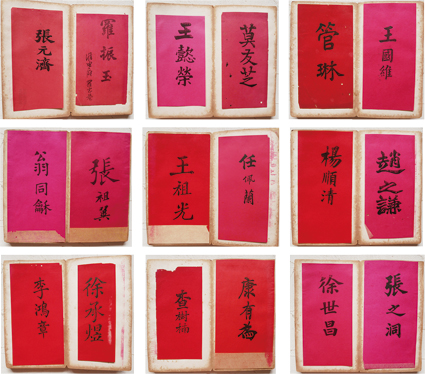 張元濟
羅振玉
王懿榮
莫友芝
管琳
王國維
翁同龢
張祖翼
王祖光
任佩蘭
楊順清
趙之謙
李鴻章
徐承煜
查樹楠
康有為
徐世昌
張之洞